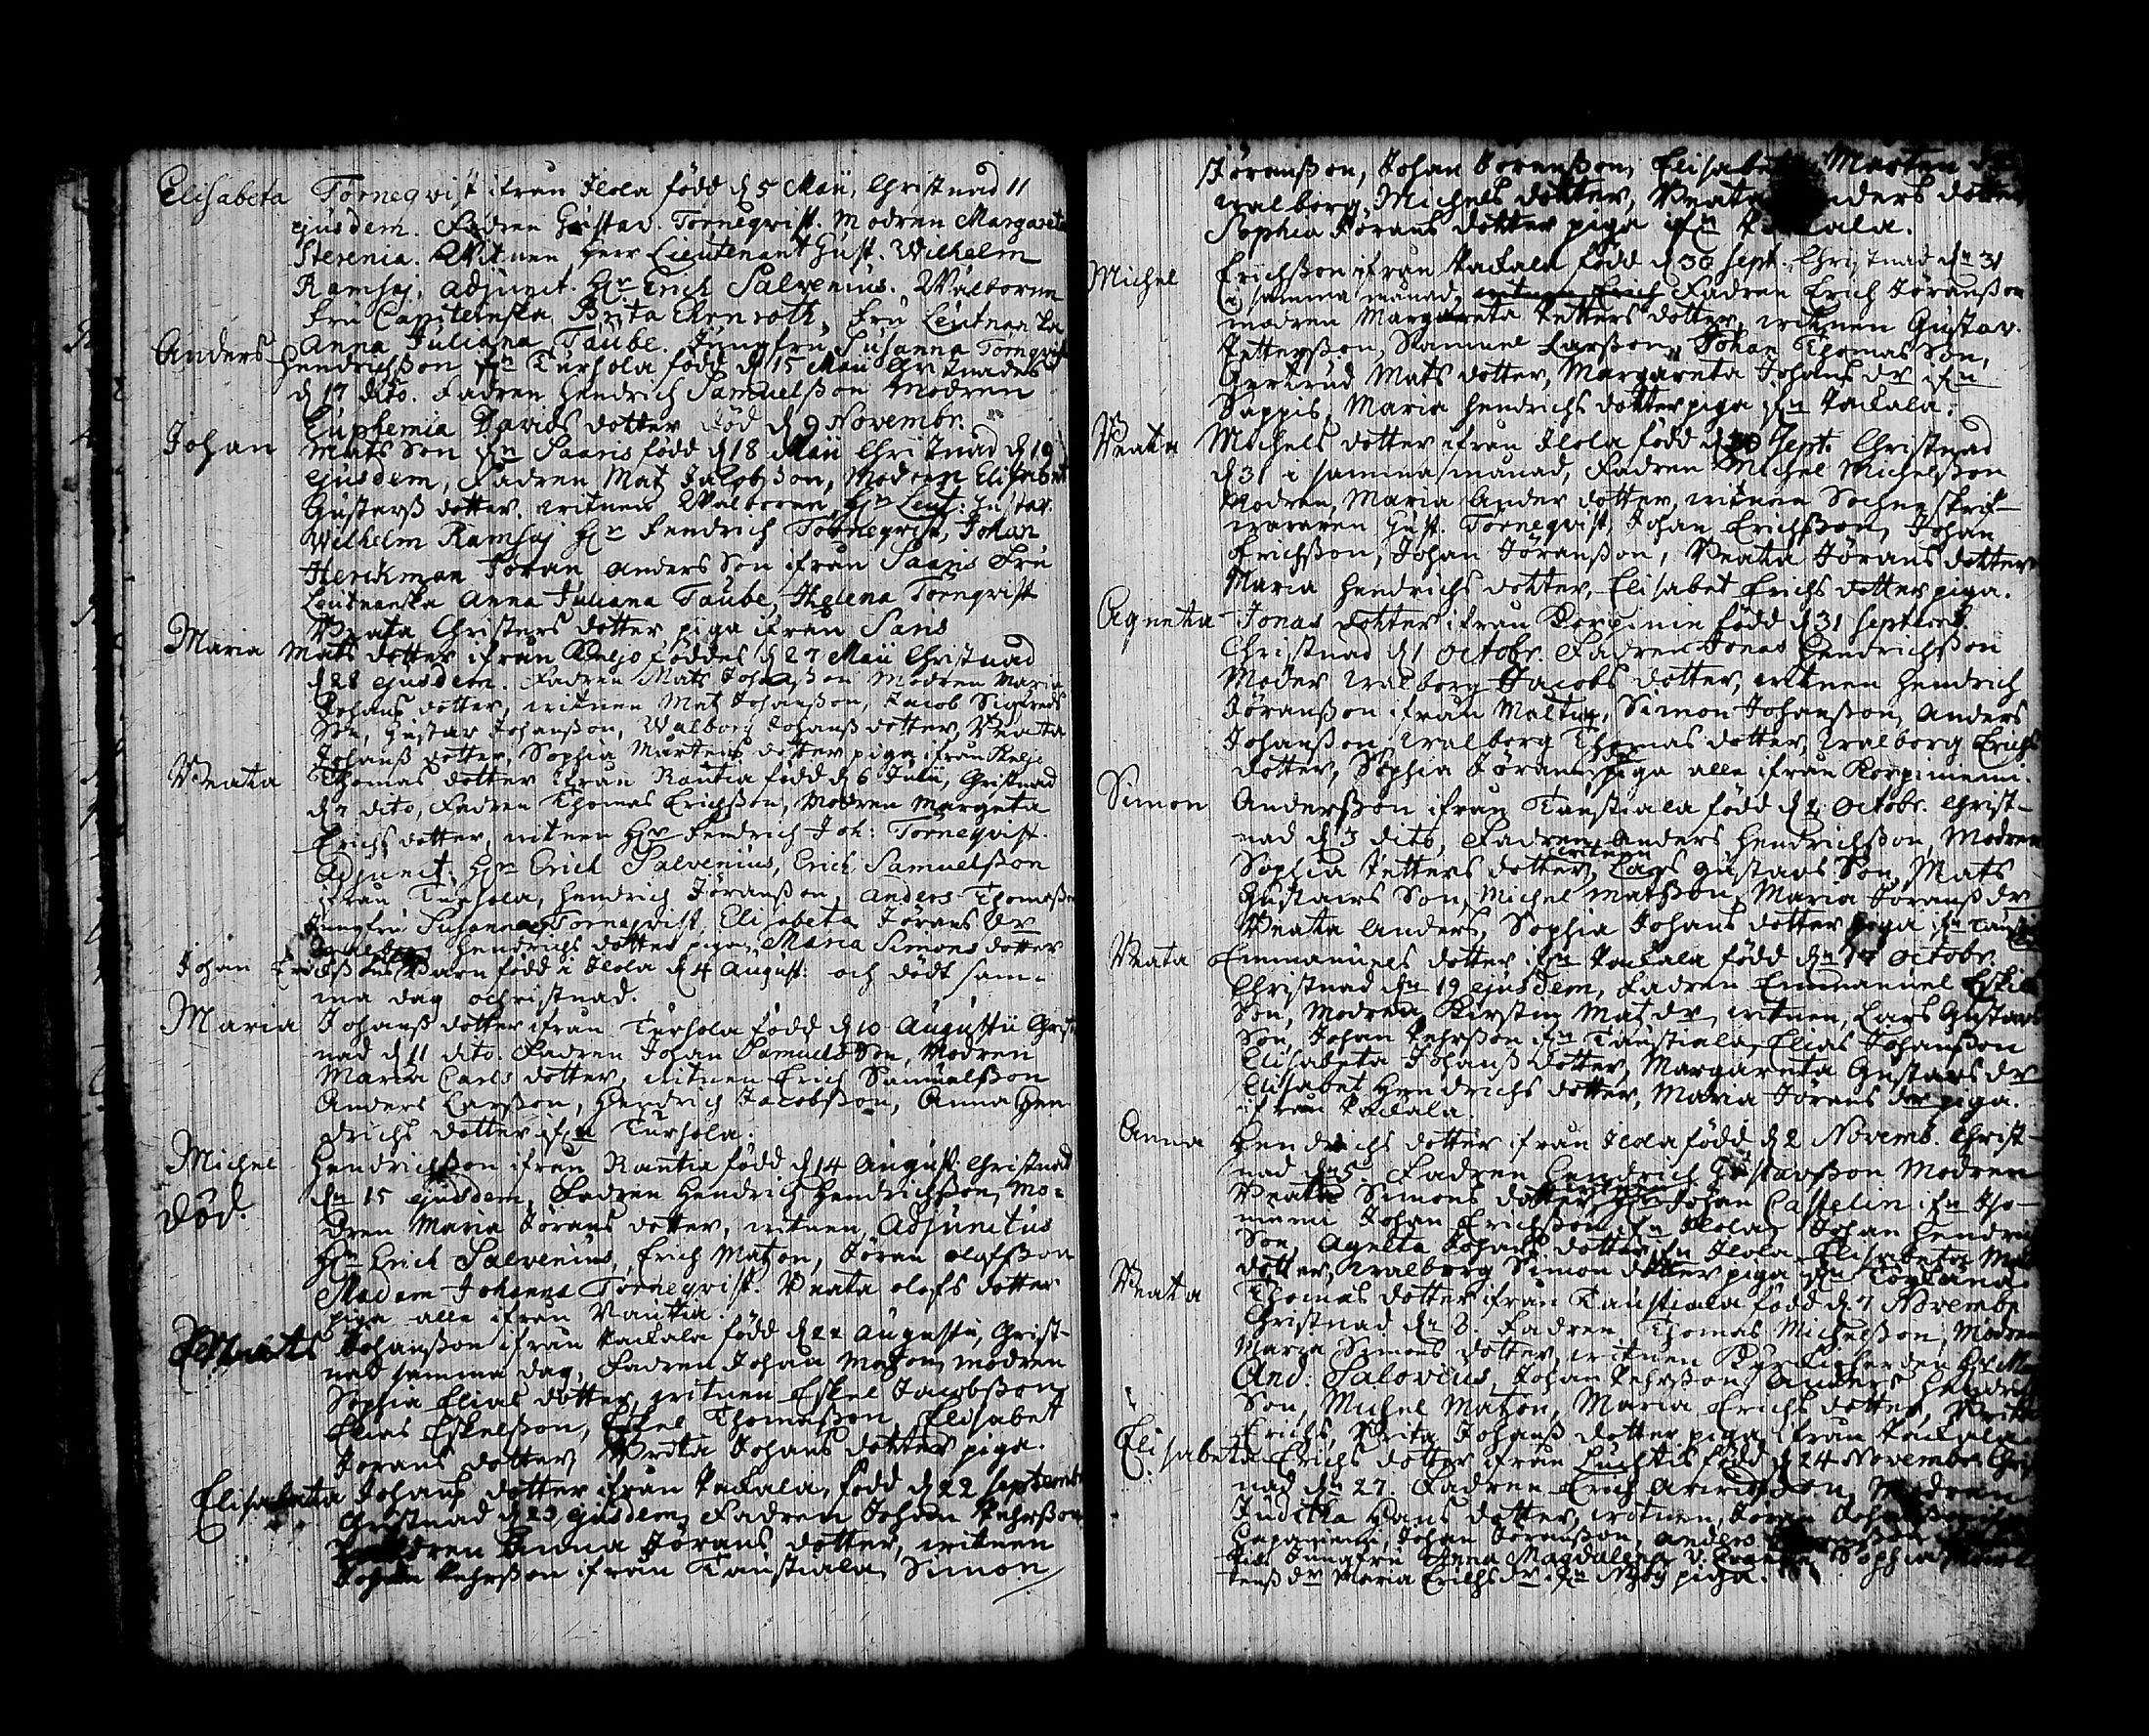 Elisabeta Torneqvist ifrån Ilola född d 5 Maii, Christnad 11
ejusdem. Fadren Gustav Torneqvist. Modren Margareta
Sterenia. Witnen Herr Lieutenant Gust. Wilhelm
Ramsaj, adjunct. Hr Erich Salvenius. Wälborne
Fru Capiteinska Brita Ehrnroth, Fru Leutnanska
Anna Juliana Taube. Jungfru Susanna Tornqvist
Anders Hendrichsson fn Turhola född d 15 Maii Christnades
d 17 dito. Fadren Hendrich Samuelsson Modren
Euphemia Davids dotter Död d 9 Novembr.
Johan Mats Son fn Saaris född d 18 Maii Christnad d 19
ejusdem, Fadren Mat Jacobsson, Modren Elisabet
Gustafs dotter. witnen Wälboren Hr Leut: Gustav.
Wilhelm Ramsaj Hr Fendrich Torneqvist, Johan
Herckman Jöran Anders Son ifrån Saaris Fru
Leutnanska Anna Juliana Taube, Helena Tornqvist
Beata Christers dotter piga ifrån Saris
Maria Mats dotter ifrån föddes d 27 Maii Christnad
d 28 ejusdem. Fadren Mats Johansson Modren Maria
Johans dotter, witnen Mat Johansson, Jacob Sigfreds
Son, Gustav Johansson, Walborg Johanss dotter, Beata
Johanss dotter, Sophia Mårtens dotter piga ifrån
Beata Thomas dotter ifrån Rautia född d 6 Julii, Christnad
d 7 dito, Fadren Thomas Erichsson, Modren Margeta
Erichs dotter, witnen Hr Fendrich Joh: Torneqvist.
Adjunct. Hr Erich Salvenius, Erich Samuelsson
ifrån Turhola, Hendrich Jöransson, Anders Thomasson
Jungfru Susanna Torneqvist, Elisabeta Jörans Dr
Hendrichs dotter piga, Maria Simons dotter
Johan Barn född i Ilola d 4 August: och dödt sam-
ma dag ochristnad.
Maria Johanss dotter ifrån Turhola född d 10 Augustii Christ
nad d 11 dito. Fadren Johan Samuels Son, Modren
Maria Carls dotter, witnen Erich Samuelsson
Anders Larsson, Hendrich Jacobsson, Anna Hen
drichs dotter ifrn Turhola.
Michel Hendrichsson ifrån Rautia född d 14 August. Christnad
död. dn 15 ejusdem, Fadren Hendrich Hendrichsson, Mo-
dren Maria Jörans dotter, witnen Adjunctus
Hr Erich Salvenius, Erich Matson, Jöran Olofsson
Madam Johanna Torneqvist. Beata Olofs dotter
piga alle ifrån Rautia.
Mats Johansson ifrån Packala född d 22 Augusti, Christ-
nad samma dag, Fadren Johan Matson, modren
Sophia Elias dotter, witnen Eskel Jacobsson
Elias Eskelsson, Eskel Thomasson, Elisabet
Jörans dotter, Brita Johans dotter piga.
Elisabeta Johans dotter ifrån Packala, född d 22 Septembr
Christnad d 23 ejusdem, Fadren Johan Pehrsson
Modren Anna Jörans dotter, witnen
Johan Pehrsson ifrån Taustiala, Simon
Jöransson, Johan Jöransson, Elisabet Morten
Walborg Michels dotter, Beata Anders dotter
Sophia Jörans dotter piga ifn Packala.
Michel Erichsson ifrån Packala född d 30 Sept. Christnad dn 31
i samma månad, Fadren Erich Jöransson
modren Margareta Petters dotter, witnen Gustav.
Pettersson, Samuel Larsson, Johan Thomas Son,
Gertrud Mats dotter, Margareta Johans dr ifn
Sappis, Maria Hendrichs dotter piga ifn Packala.
Beata Michels dotter ifrån Ilola född d 30 Sept Christnad
d 31 i samma månad, Fadren Michel Michelsson
Modren, Maria Ander dotter, witnen Sochneskrif-
waren Gust. Torneqvist, Johan Erichsson, Johan
Erichsson, Johan Jöransson, Beata Jörans dotter
Maria Hendrichs dotter, Elisabet Erichs dotter piga.
Agneta Jonas dotter ifrån Korpinin född d 31 Septemb.
Christnad d 1 Octobr. Fadren Jonas Hendrichsson
Moder Walborg Jacobs dotter, witnen Hendrich
Jöransson ifrån Simon Johansson, Anders
Johansson, Walborg Thomas dotter, Walborg Erichs
dotter, Sophia Jörans piga alle ifrån Korpiniemi.
Simon Andersson ifrån Taustiala född d 2 Octobr. Christ-
nad d 3 dito, Fadren Anders Hendrichsson, Modren
Sophia Petters dotter, witnen Lars Gustavs Son, Mats
Gustavs Son, Michel Matsson, Maria Jöranss dr
Beata Anders, Sophia Johans dotter piga fn
Beata Emmanuels dotter ifn Packala född dn 17 Octobr.
Christnad dn 19 ejusdem, Fadren Emmanuel Eskil
Son, Modren Kirstin Mats dr, witnen, Lars Gustavs
Son, Johan Pehrsson ifn Taustiala, Elias Johansson
Elisabeta Johanss dotter, Margareta Gustavs dr
Elisabet Hendrichs dotter, Maria Jörans dr piga.
ifrån Packala.
Anna Hendrichs dotter ifrån Ilola född d 2 Novemb. Christ-
nad dn 5. Fadren Hendrich Gustavsson Modren
Beata Simons dotter Johan Casselin ifn
Johan Erichsson ifn Ilola, Johan Hendrich
Son, Agneta Johans dotter fn Ilola Elisabeta Mats
dotter, Walborg Simon dotter piga ifn
Beata Thomas dotter ifrån Taustiala född d 7 Novembr
Christnad dn 8. Fadren Thomas Michelsson, Modren
Maria Simons dotter, witnen Kyrckioherden Hr
And: Salovius, Johan Pehrsson, Anders Hendrich
Son, Michel Matson, Maria Erichs dotter, Britta
Erichs, Brita Johanss dotter piga ifrån Packala
Elisabeta Erichs dotter ifrån Luchtis född d 24 Novembr. Christ
nad dn 27. Fadren Erich Modren
Juditha Hans dotter, witnen, Jöran
Johan Jöransson, Anders
Jungfru Anna Magdalena Sophia
tenss dr Maria Erichs dr ifn piga.